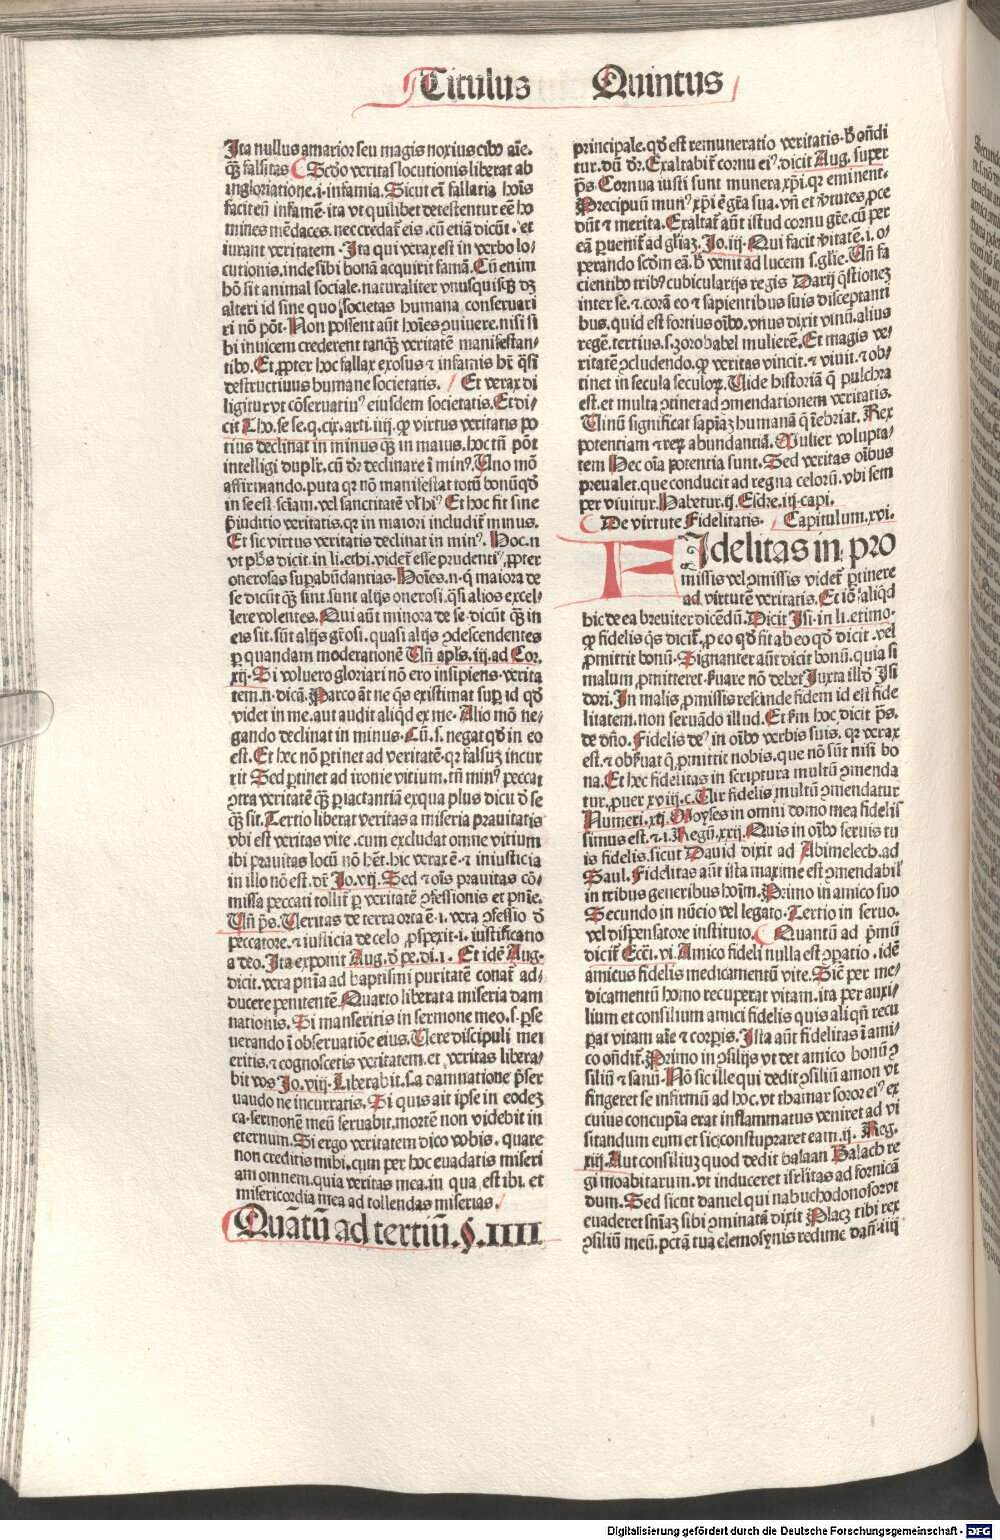 Titulus Quintus
Ita nullus amarior seu magis noxius cibo aīe.
q̄ȝ falsitas Scd̄o veritas locutionis liberat ab
ingloriatione .i. infamia. Sicut em̄ fallatia hoīs
facit eū infamē. ita vt quilibet detestentur eē ho
mines mēdaces. nec credat̄ eis. cū etiā dicūt. et
iurant veritatem. Ita qui verax est in verbo lo/
cutionis, inde sibi bonā acquirit famā. Cū enim
hō sit animal sociale. naturaliter vnusquisqȝ dȝ
alteri id sine quo societas humana conseruari
ri nō pōt. Non possent aūt hoīes ꝯuiuere. nisi si
bi inuicem crederent tanqȝ veritatē manifestan/
tibꝰ. Et ꝓpter hoc fallax exosus ⁊ infamis hr̄ q̄si
destructiuus humane societatis. Et verax di
ligitur vt cōseruatiuꝰ eiusdem societatis. Et di/
cit Tho. se se. q. cix. arti. iiij. qꝛ virtus veritatis po
tius declinat in minus qȝ in maius. hoc tn̄ pōt
intelligi duplr̄. cū dr̄ declinare ī minꝰ. Uno mō
affirmando. puta qꝛ nō manifestat totū bonū qd̄
in se est. sciam. vel sanctitatē vl' hiꝰ Et hoc fit sine
p̄iuditio veritatis. qꝛ in maiori includit̄ minus.
Et sic virtus veritatis declinat in minꝰ. Hoc .n.
vt ph̄s dicit in li. ethi. videt̄ esse prudentiꝰ, ꝓpter
onerosas suꝑabūdantias. Hoīes .n. q̄ maiora de
se dicūt qȝ sint. sunt alijs onerosi. q̄si alios excel/
lere volentes. Qui aūt minora de se dicūt qȝ in
eis sit. sūt alijs gr̄osi. quasi alijs ꝯdescendentes
ꝑ quandam moderationē Un̄ apl̄s .iij. ad Cor.
xij. Si voluero gloriari nō ero insipiens. verita
tem .n. dicā. Parco aūt ne qs̄ existimat suꝑ id qd̄
videt in me. aut audit aliqd̄ ex me. Alio mō ne/
gando declinat in minus. Cū .s. negat qd̄ in eo
est. Et hec nō ꝑtinet ad veritatē. qꝛ falsuȝ incur
rit Sed ꝑtinet ad ironie vitium. tn̄ minꝰ peccat
ꝯtra veritatē qȝ ꝑ iactantiā ex qua plus dicit d̄ se
qȝ sit. Tertio liberat veritas a miseria prauitatis
vbi est veritas vite. cum excludat omne vitium
ibi prauitas locū nō hēt. hic verax ē. ⁊ iniusticia
in illo nō est. dr̄ Jo. vij. Sed ⁊ oīs prauitas cō/
missa peccati tollit̄ ꝑ veritatē ꝯfessionis et pn̄ie.
Un̄ ps̄. Veritas de terra orta ē .i. vera ꝯfessio d̄
peccatore. ⁊ iusticia de celo ꝓspexit .i. iustificatio
a deo. Ita exponit Aug. d̄ pe. di. i. Et idē Aug.
dicit. vera pn̄ia ad baptismi puritatē conat̄ ad/
ducere penitentē. Quarto liberat a miseria dam
nationis. Si manseritis in sermone meo .s. perse
uerando ī obseruatiōe eius. Uere discipuli mei
eritis. ⁊ cognoscetis veritatem. et veritas libera/
bit vos Jo. viij. Liberabit .s. a damnatione p̄ser
uando ne incurratis. Si quis ait ipse in eodeȝ
ca. sermonē meū seruabit. mortē non videbit in
eternum. Si ergo veritatem dico vobis. quare
non creditis mihi. cum per hoc euadatis miseri
am omnem. quia veritas mea. in qua est ibi. et
misericordia mea ad tollendas miserias.
Quātū ad tertiū. §. IIII
principale. qd̄ est remuneratio veritatis. ꝟ on̄di
tur. dū dr̄. Exaltabit̄ cornu eiꝰ. dicit Aug. super
ps̄. Cornua iusti sunt munera xp̄i. qꝛ eminent
Precipuū munꝰ xp̄i ē gr̄a sua. vn̄ et ꝟtutes ꝓce
dūt ⁊ merita. Exaltat̄ aūt istud cornu gr̄e. cū per
eā ꝑuenit̄ ad gl'iaȝ. Jo. iij. Qui facit ꝟitatē .i. o/
perando scd̄m eā. ꝟ venit ad lucem .s. glie. Un̄ fa
cientibꝰ tribꝰ cubicularijs regis Darij q̄stioneȝ
inter se. ⁊ corā eo ⁊ sapientibus suis disceptanti
bus. quid est fortius oībꝰ. vnus dixit vinū. alius
regē. tertius .s. zorobabel mulierē. Et magis ve/
ritatē ꝯcludendo. qꝛ veritas vincit. ⁊ viuit ⁊ ob/
tinet in secula seculoꝝ. Uide historiā q̄ pulchra
est. et multa ꝯtinet ad ꝯmendationem veritatis.
Uinū significat sapiaȝ humanā q̄ īebriat. Rex
potentiam ⁊ reꝝ abundantiā. Mulier volupta/
tem Hec oīa potentia sunt. Sed veritas oībus
preualet. que conducit ad regna celorū. vbi sem
per viuitur. Habetur .ij. Esdre. iij. capi.
De virtute Fidelitatis. Capitulum. xvi.
FIdelitas in pro
missis vel ꝯmissis videt̄ ꝑtinere
ad virtutē veritatis. Et iō aliqd̄
hic de ea breuiter dicēdū. Dicit Isi. in li. etimo.
qꝛ fidelis qs̄ dicit̄, ꝓ eo qd̄ fit ab eo qd̄ dicit. vel
ꝓmittit bonū. Signanter aūt dicit bonū. quia si
malum ꝓmitteret. ẜuare nō debet Juxta illd̄ Isi
dori. In malis ꝓmissis rescinde fidem id est fide
litatem. non seruādo illud. Et ẜm hoc dicit ps̄.
de dn̄o. Fidelis deꝰ in oībꝰ verbis suis. qꝛ verax
est. ⁊ obẜuat q̄ ꝓmittit nobis. que nō sūt nisi bo
na. Et hec fidelitas in scriptura multū ꝯmenda
tur. puer. xviij. c. Uir fidelis multū ꝯmendatur
Numeri. xij. Moyses in omni domo mea fidelis
simus est. ⁊ .i. Regū. xxij. Quis in oībꝰ seruis tu
is fidelis. sicut Dauid dixit ad Abimelech. ad
Saul. Fidelitas aūt ista maxime est ꝯmendabil'
in tribus generibus hoīm. Primo in amico suo
Secundo in nūcio vel legato. Tertio in seruo.
vel dispensatore instituto. Quantū ad p̄mū
dicit̄ Ecci. vi. Amico fideli nulla est ꝯparatio. idē
amicus fidelis medicamentū vite. Sic̄ per me/
dicamentū homo recuperat vitam. ita per auxi/
lium et consilium amici fidelis quis aliqn̄ recu
ꝑat vitam aīe ⁊ corꝑis. Ista aūt fidelitas ī ami/
co on̄dit̄. Primo in ꝯsilijs vt det amico bonū ꝯ
siliū ⁊ sanū. Nō sic ille qui dedit ꝯsiliū amon vt
fingeret se infirmū ad hoc. vt thamar soror eiꝰ ex
cuius concupīa erat inflammatus veniret ad vi
sitandum eum et sic constupraret eam .ij. Reg.
xiij. Aut consiliuȝ quod dedit balaan Balach re
gi moabitarum. vt induceret isrlitas ad fornicā
dum. Sed sicut daniel qui nabuchodonosor vt
euaderet sn̄iaȝ sibi ꝯminatā dixit Placȝ tibi rex
ꝯsiliū meū. pctā tua elemosynis redime dan̄. iiij
Digitalisierung gefördert durch die Deutsche Forschungsgemeinschaft - DFG